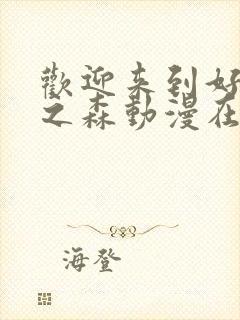 歡迎来到好
之森動漫在
海登